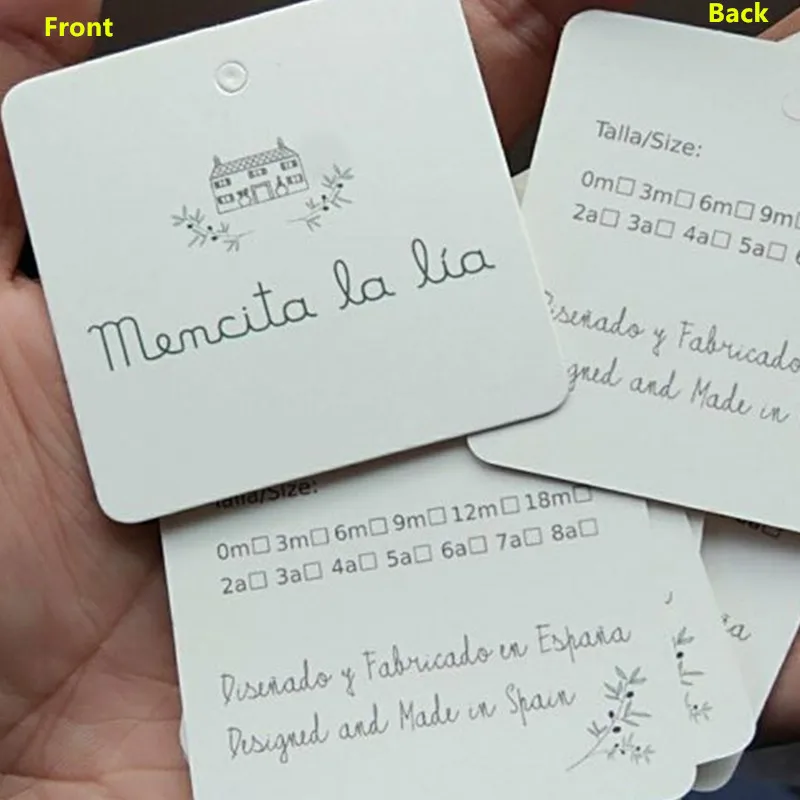 Front
Back
Mencita la lía
Talla/Size:
0m☐ 3m☐ 6m☐ 9m☐
2a☐ 3a☐ 4a☐ 5a☐
Diseñado y Fabricado
and Made in
Talla/Size:
0m☐ 3m☐ 6m☐ 9m☐ 12m☐ 18m☐
2a☐ 3a☐ 4a☐ 5a☐ 6a☐ 7a☐ 8a☐
Diseñado y Fabricado en España
Designed and Made in Spain